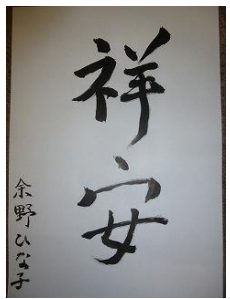 祥安
余野ひな子